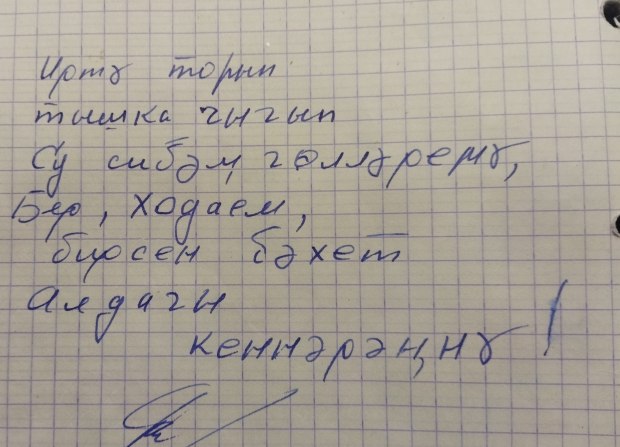 Иртә торып
тышка чыгып
Су сибәм гөлләремә,
Бер, Ходаем,
бирсен бәхет
Алдагы
кеннәрәңнә!